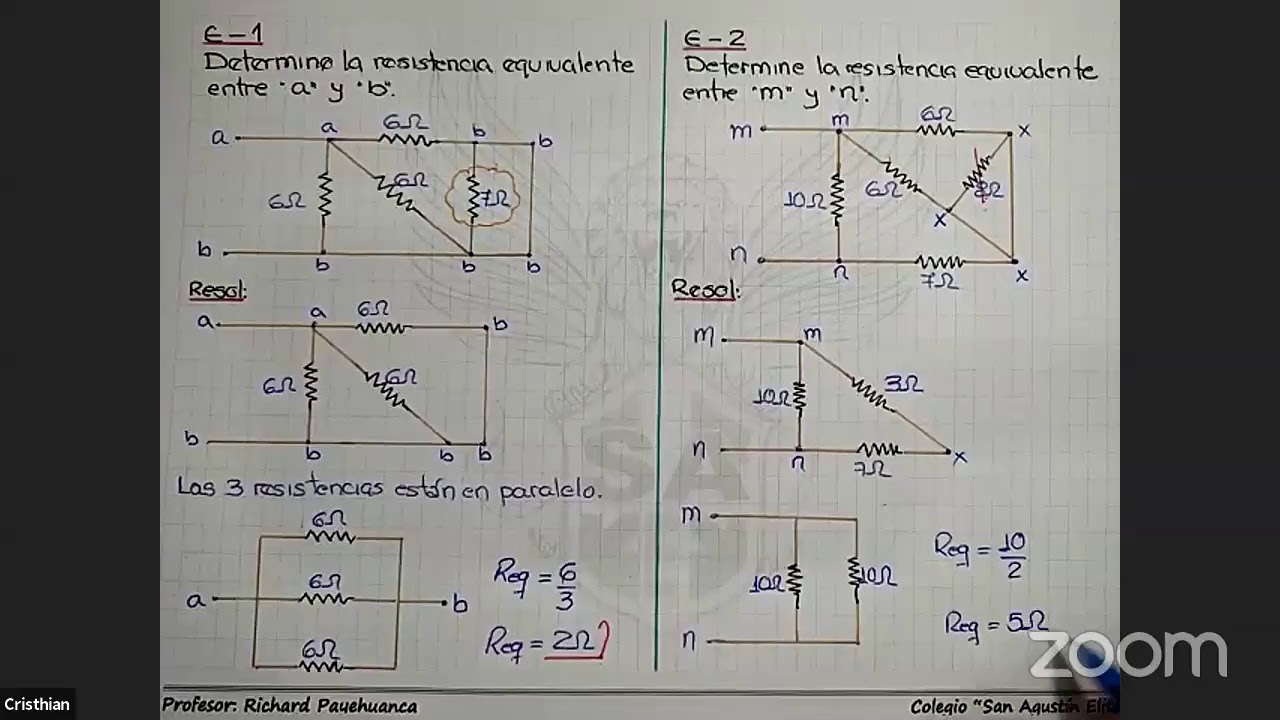 E-1
Determine la resistencia equivalente
entre "a" y "b".
a
a
6Ω
b
b
6Ω
6Ω
7Ω
b
b
b
b
Resol:
a
a
6Ω
b
6Ω
6Ω
b
b
b
b
Las 3 resistencias están en paralelo.
6Ω
6Ω
a
b
6Ω
Req = 6/3
Req = 2Ω
E-2
Determine la resistencia equivalente
entre "m" y "n".
m
m
6Ω
x
10Ω
6Ω
x
n
n
7Ω
x
Resol:
m
m
10Ω
3Ω
n
n
7Ω
x
m
10Ω
10Ω
n
Req = 10/2
Req = 5Ω
SA
zoom
Cristhian
Profesor: Richard Payehuanca
Colegio "San Agustín